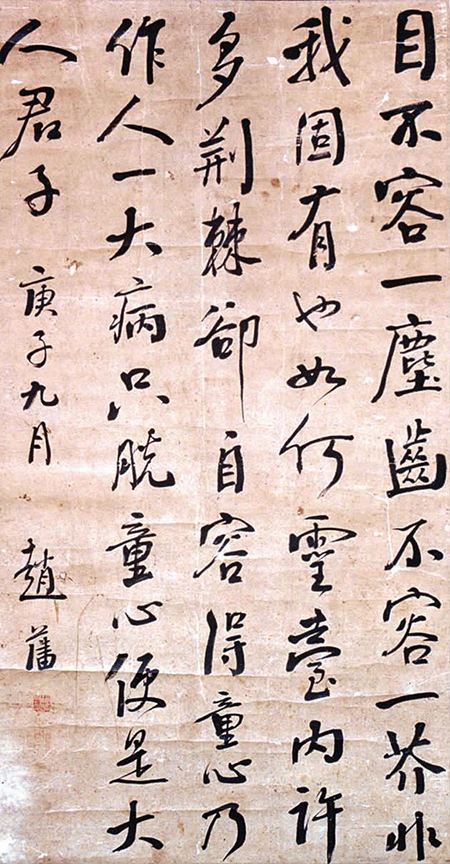 目不容一塵齒不容一芥非
我固有也如何靈臺内許
多荆棘卻自容得童心乃
作人一大病只脱童心便是大
人君子
庚子九月 趙藩